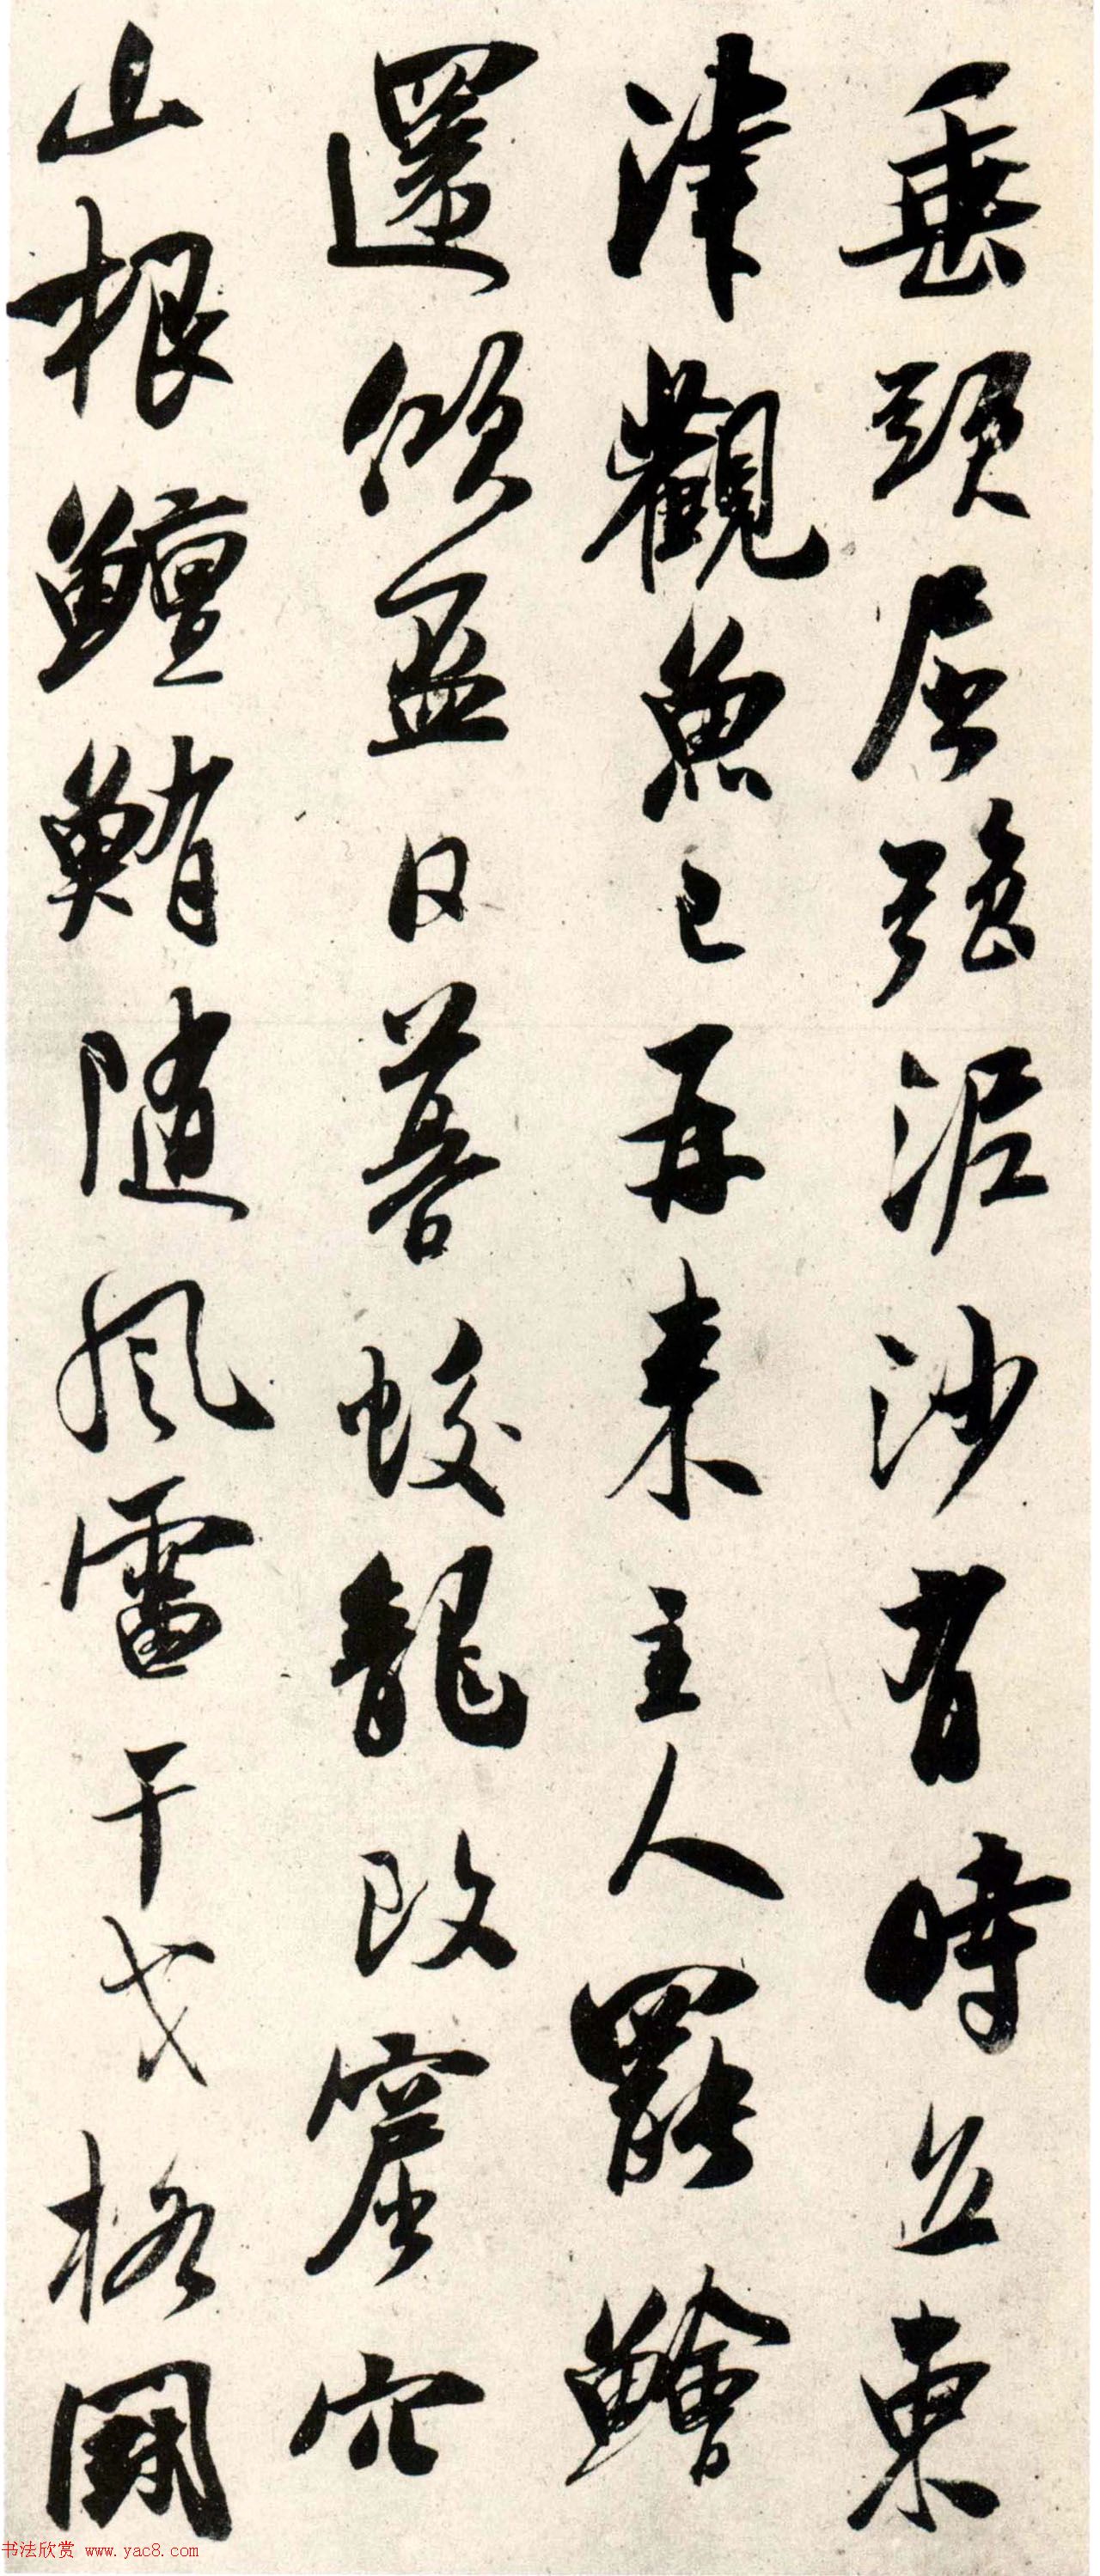 垂頭屈強泥沙有時立東
津觀魚已再来主人罷鱠
還傾盃日暮蛟龍改窟穴
山根鱣鮪随風雷干戈格鬭
书法欣赏 www.yac8.com